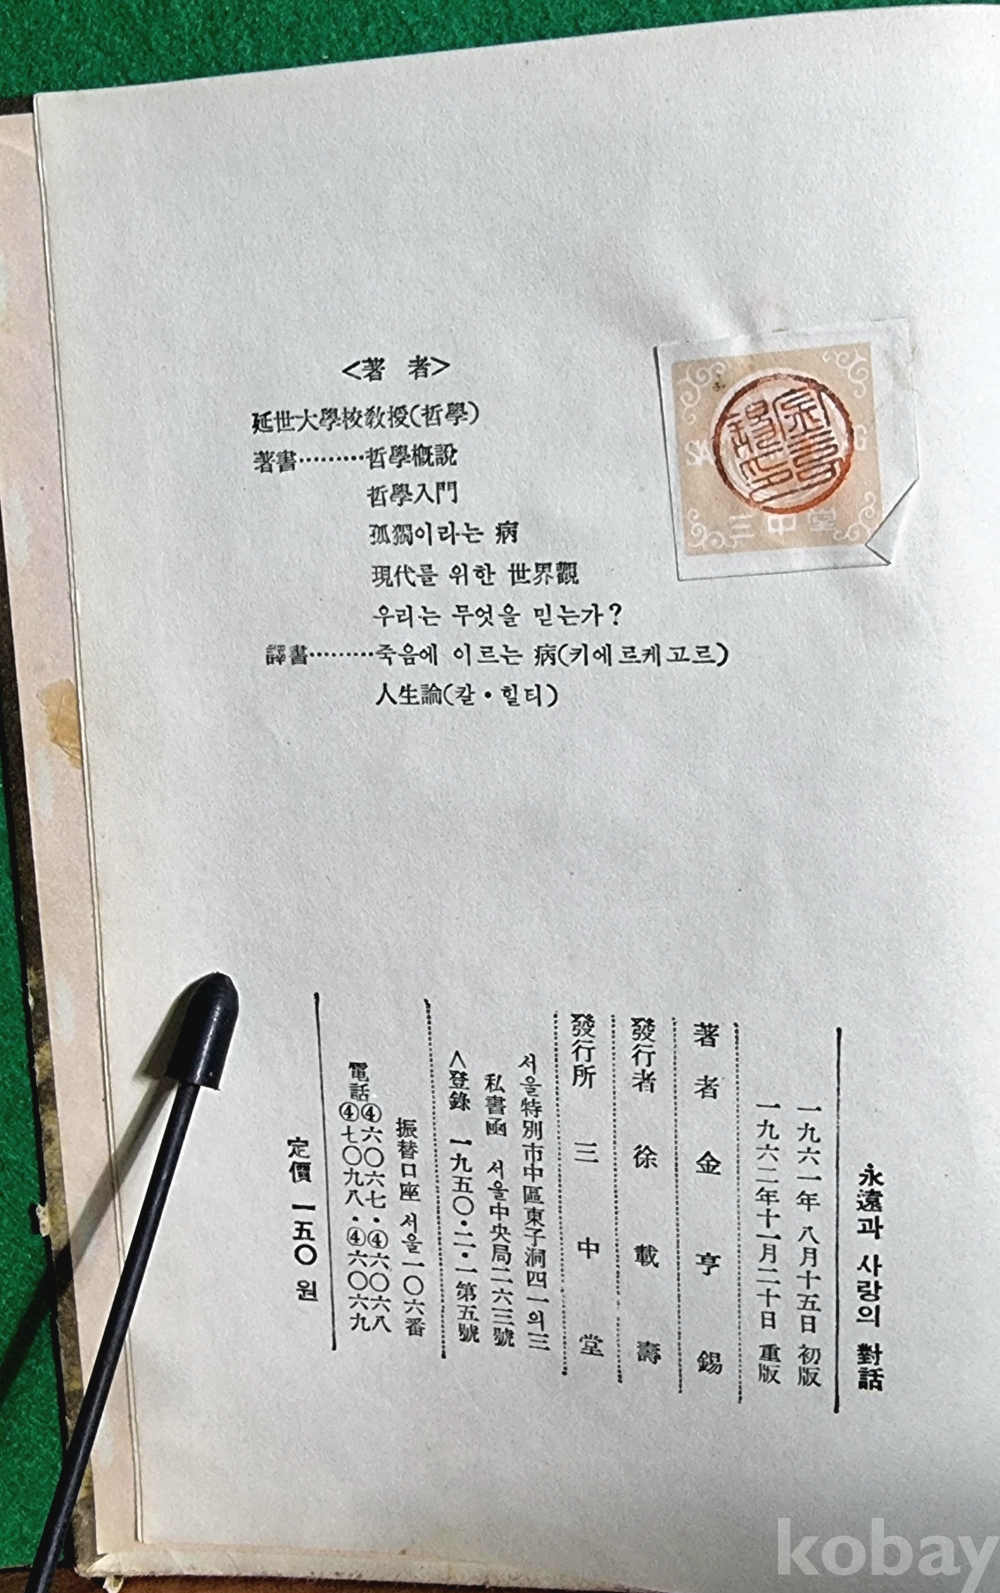 <著者>
延世大學校敎授(哲學)
著書………哲學槪說
哲學入門
孤獨이라는 病
現代를 위한 世界觀
우리는 무엇을 믿는가?
譯書………죽음에 이르는 病(키에르케고르)
人生論(칼・힐티)
三中堂
永遠과 사랑의 對話
一九六一年 八月十五日 初版
一九六二年十一月二十日 重版
著者 金亨錫
發行者 徐載壽
發行所 三中堂
서울特別市中區東子洞四一의三
私書函 서울中央局二六三號
<登錄 一九五〇・二・一第五號
振替口座 서울一〇六番
電話④六〇六七・④六〇六八
④七〇九八・④六〇六九
定價 一五〇원
kobay